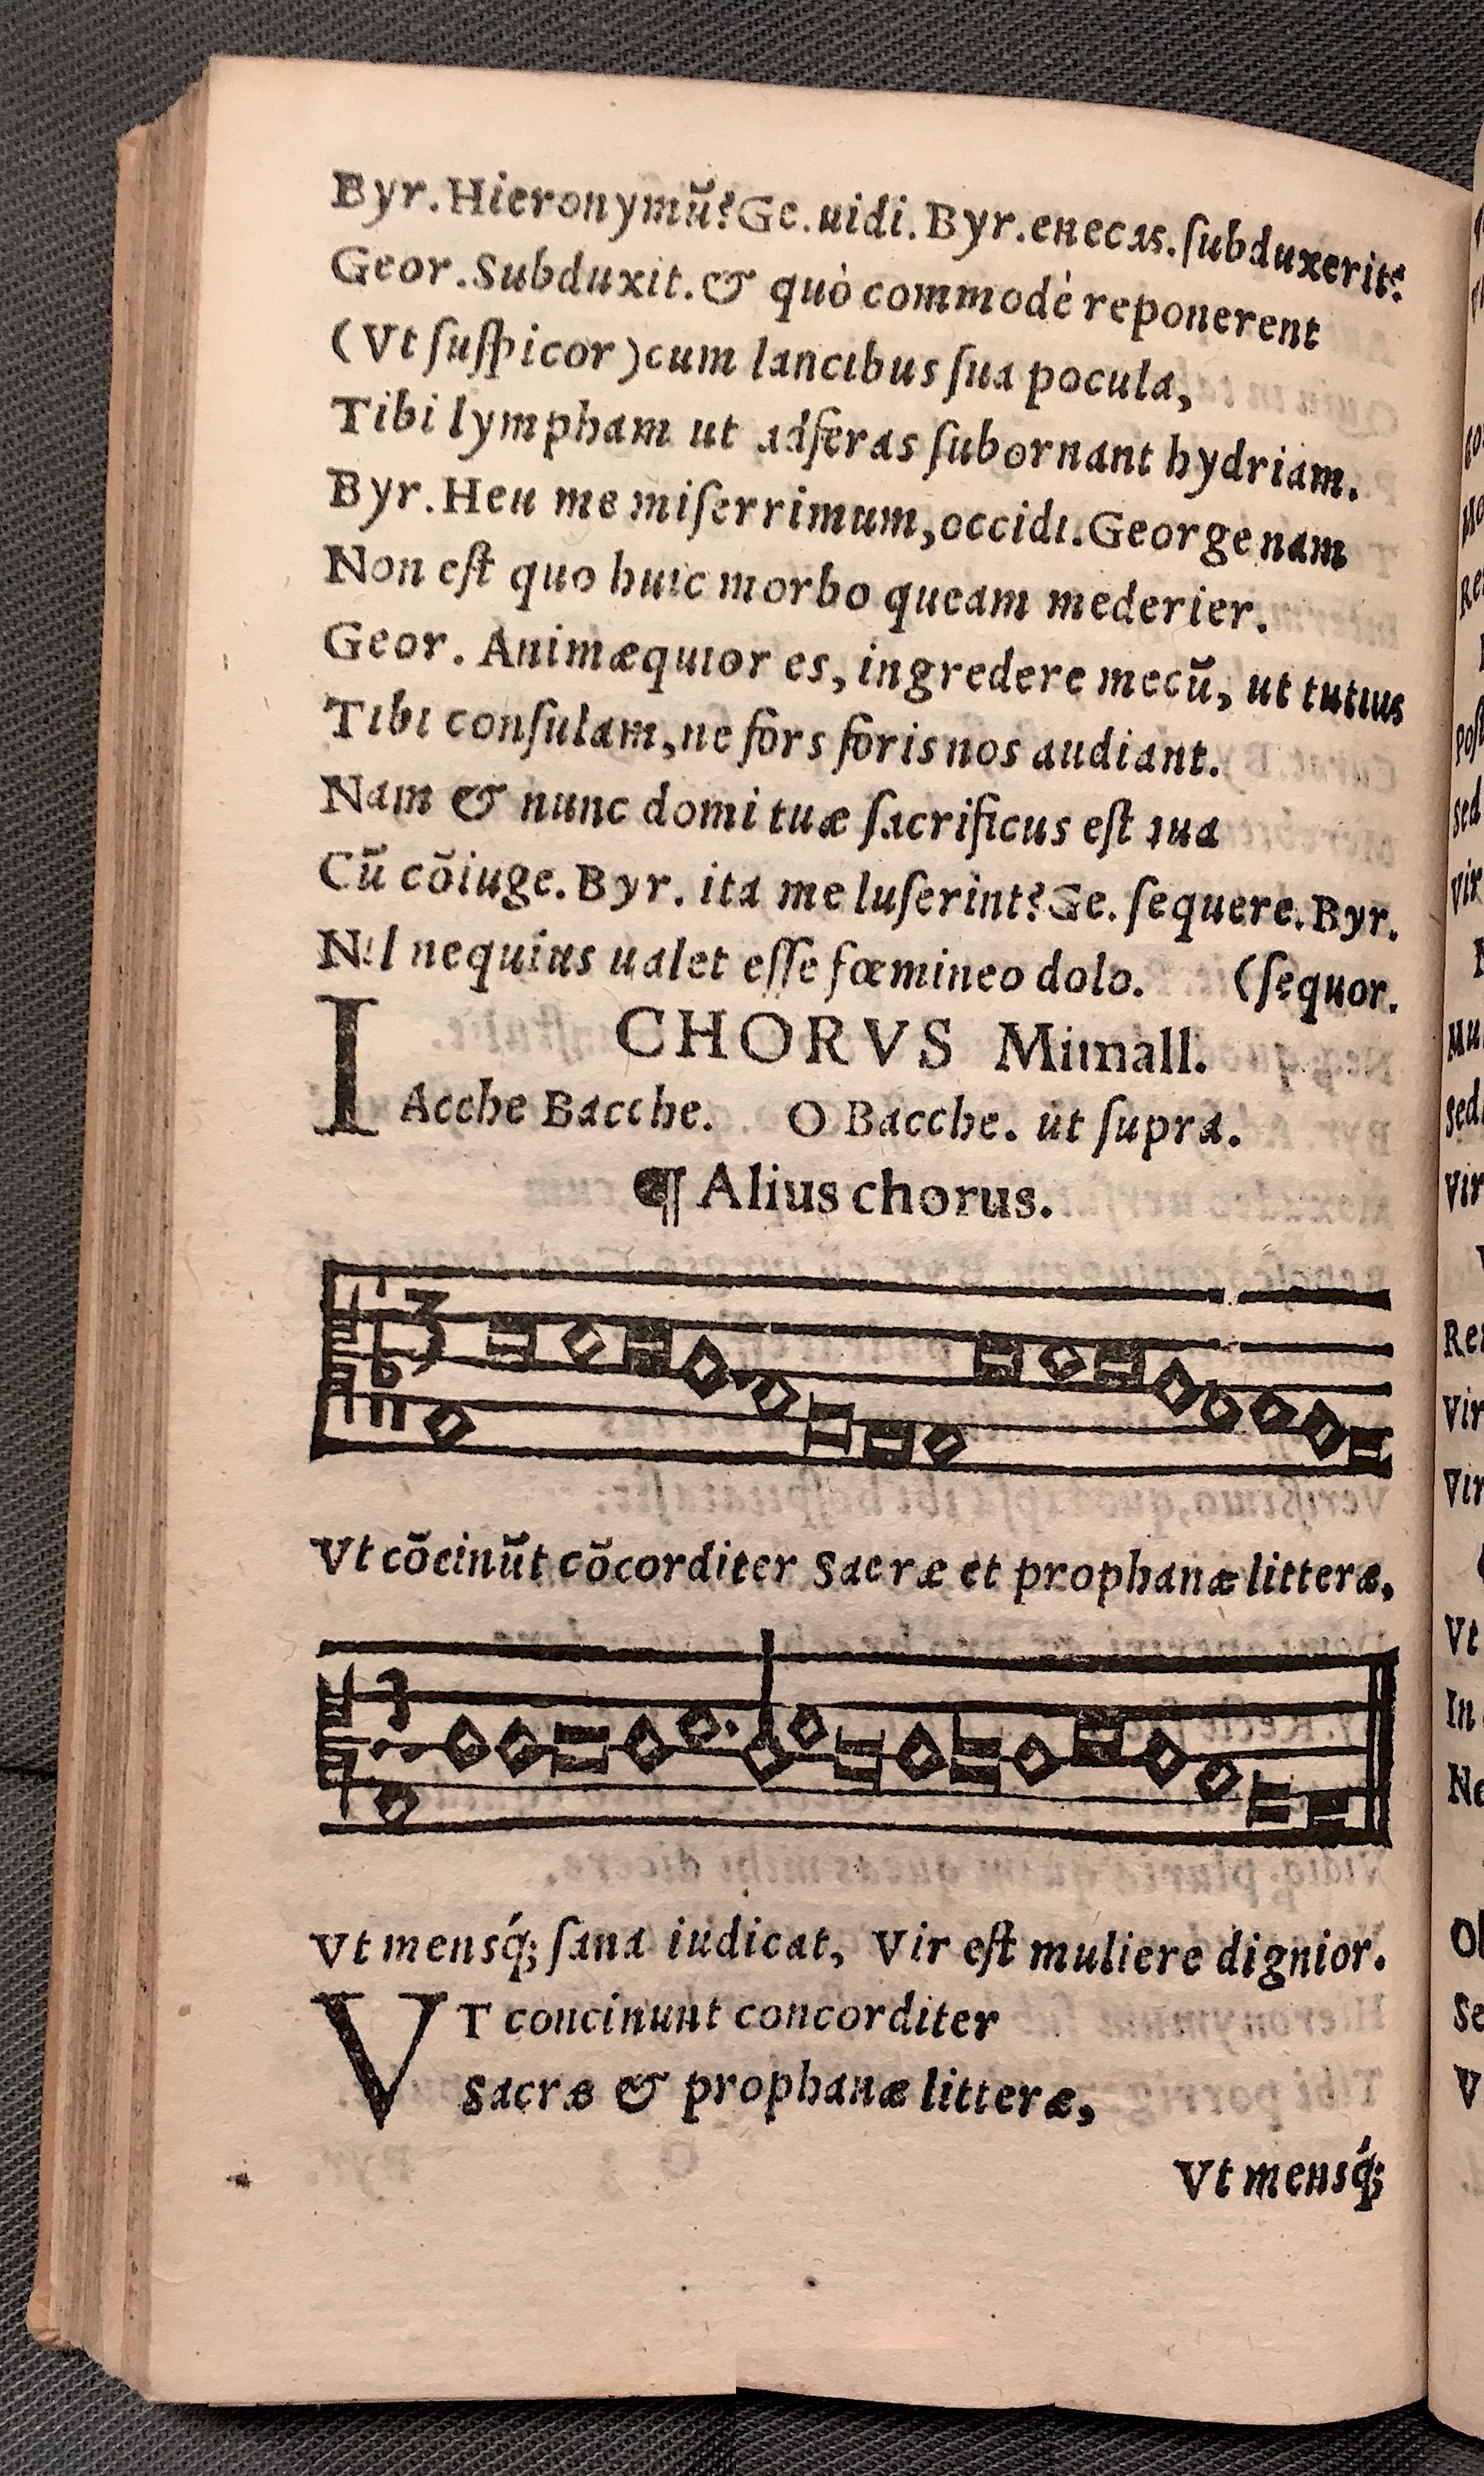 Byr. Hieronymũ? Ge. uidi. Byr. enecas. ſubduxerit?
Geor. Subduxit. & quò commodè reponerent
(Vt ſuſpicor) cum lancibus ſua pocula,
Tibi lympham ut adferas ſubornant hydriam.
Byr. Heu me miſerrimum, occidi. George nam
Non eſt quo huic morbo queam mederier.
Geor. Animæquior es, ingredere mecũ, ut tutius
Tibi conſulam, ne fors foris nos audiant.
Nam & nunc domi tuæ ſacrificus eſt tua
Cũ cõiuge. Byr. ita me luſerint? Ge. ſequere. Byr.
Nil nequius ualet eſſe fœmineo dolo. (ſequor.
CHORVS Mimall.
IAcche Bacche. O Bacche. ut ſupra.
¶ Alius chorus.
Vt cõcinũt cõcorditer Sacræ et prophanæ litteræ,
Vt mensq́; ſana iudicat, Vir eſt muliere dignior.
VT concinunt concorditer
Sacræ & prophanæ litteræ,
Vt mensq́;